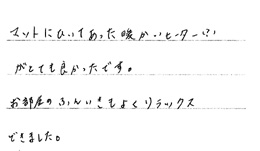 マットにひいてあった暖かいヒーター(?)
がとても良かったです。
お部屋のふんいきもよくリラックス
できました。